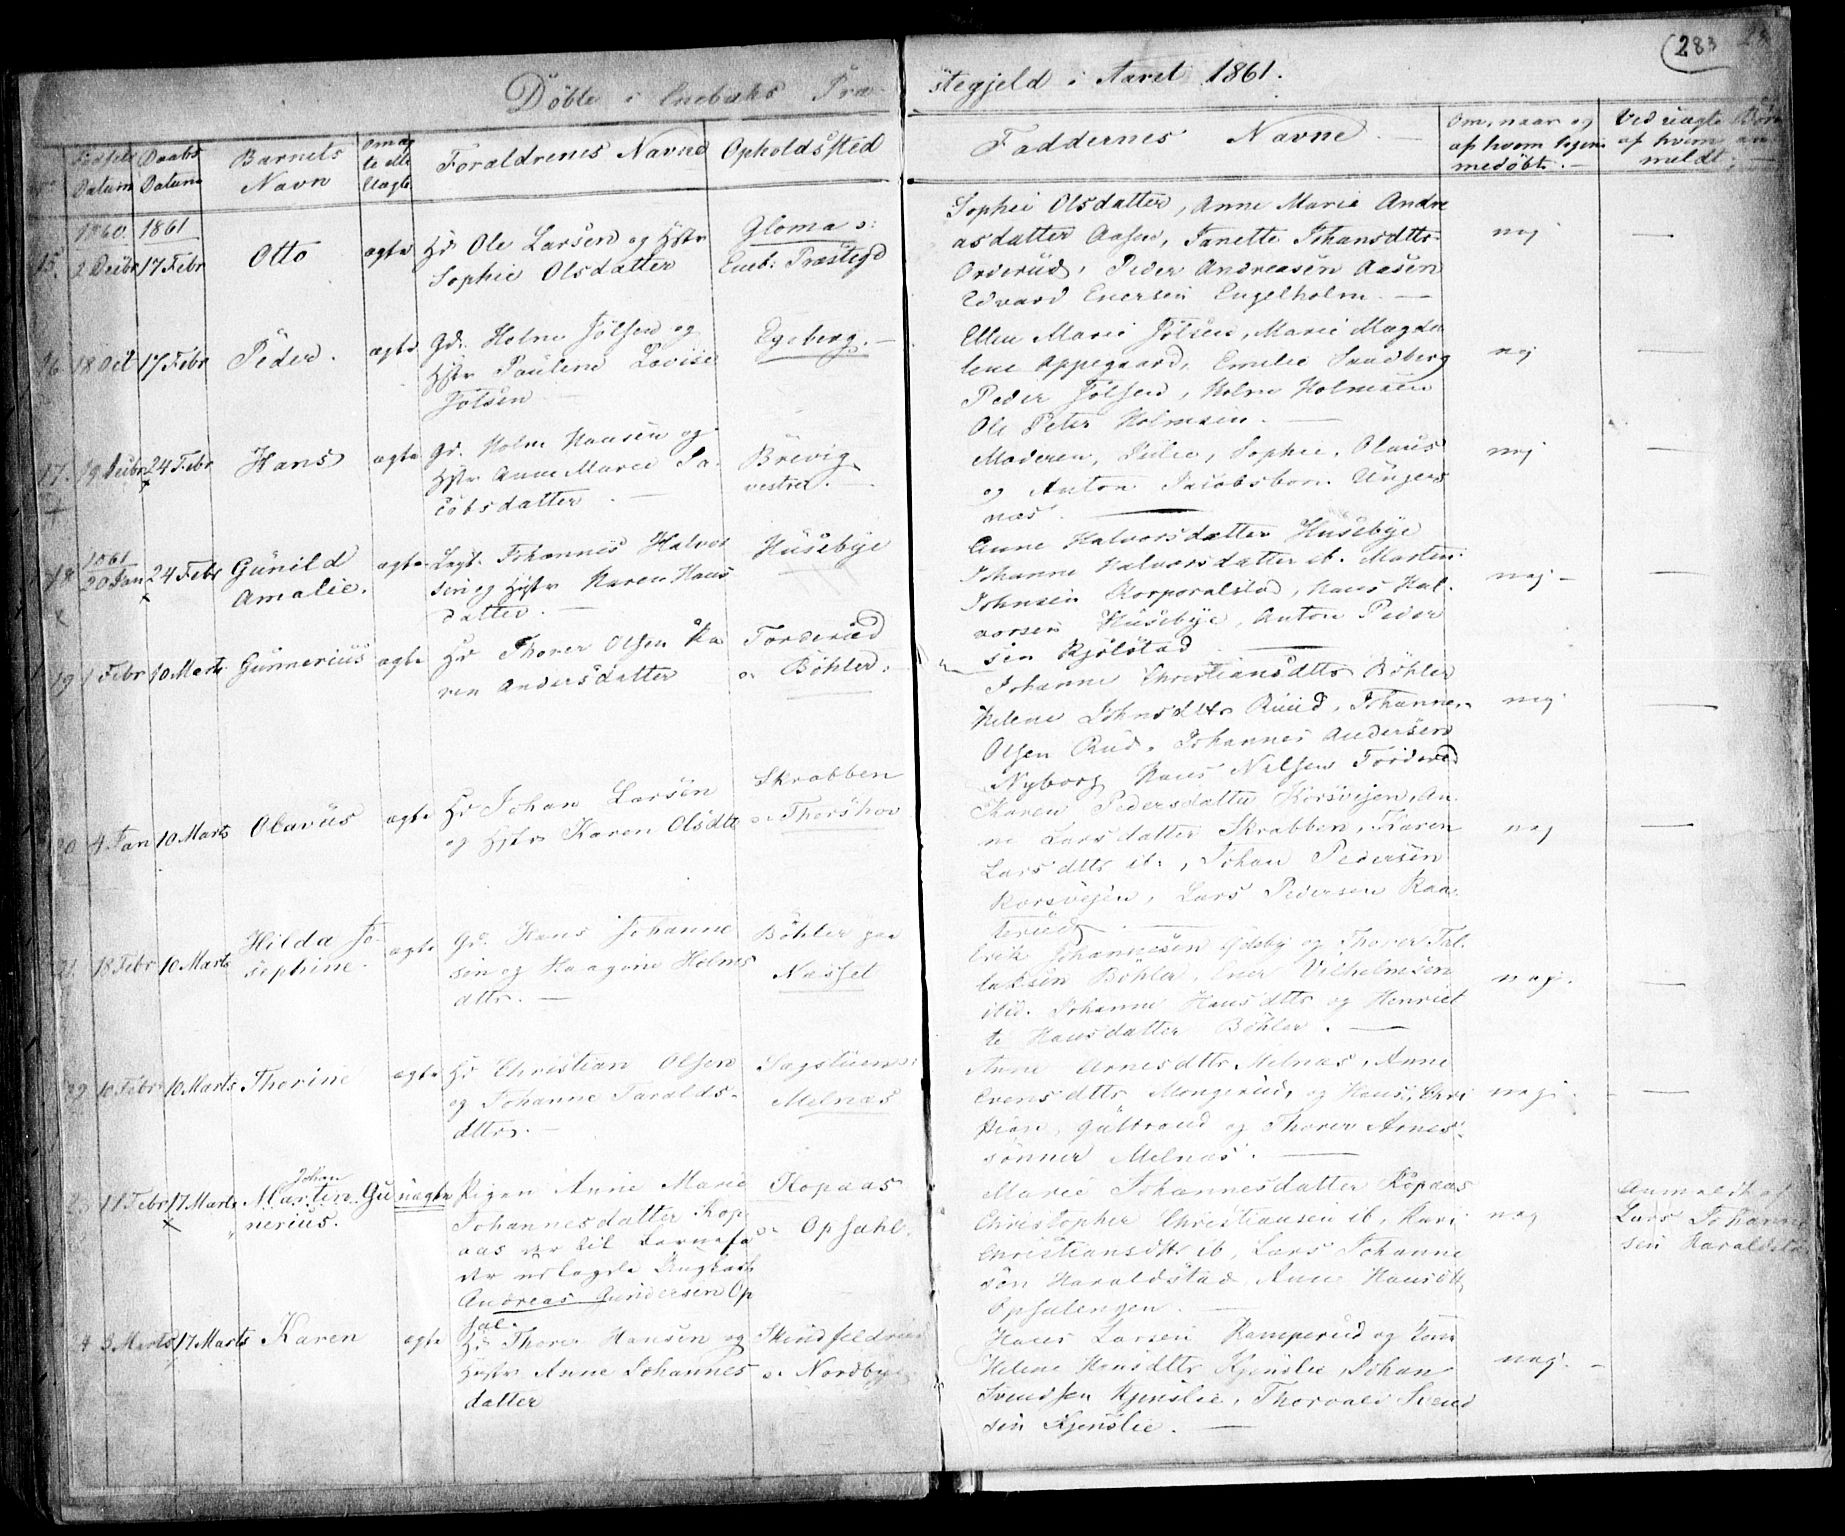 283
Döbte i Enebaks Præ-
stegjeld i Aaret 1861.
Fødsels Datum
Daabs Datum
Barnets Navn
Om ægte elle Uægte
Forældrenes Navne
Opholdssted
Faddernes Navne
Om, naar og af hvem hjemmedöbt. -
Ved uægte Börn af hvem anmeldt. -
1860 1861
15. 2 Decbr 17 Febr Otto ægte Hd Ole Larsen og Hstr
Sophie Olsdatter
Gloma s:
Eneb: Præstegd
Sophie Olsdatter, Anne Marie Andre
asdatter Aasen, Janette Johansdttr
Orderud, Peder Andreasen Aasen
Edvard Enersen Engelholm. —
nej —
16 18 Oct 17 Febr Peder. ægte Gd. Holm Jölsen og
Hstr Pauline Lovise
Jölsen
Egeberg. -
Ellen Marie Jölsen, Marie Magda
lene Oppegaard, Emilie Sandberg
Peder Jölsen, Holm Holmsen
Ole Peter Holmsen. —
nej —
17. 19 Decbr 24 Febr Hans ægte Gd. Holm Hansen og
Hstr Anne Marie Ja-
cobsdatter. —
Brevig
vestre. -
Moderen, Julie, Sophie, Olaus
og Anton Jacobsborn Ungers
næs. —
nej —
1861
18 20 Jan 24 Febr Gunild
Amalie.
ægte Johannes Halvor
sen og Hstr Karen Hans
datter. —
Husebye
Anne Halvorsdatter Husebye
Johanne Halvorsdatter ib. Marten
Johnsen Korporalstad, Hans Hal-
vorsen Husebye, Anton Peder
sen Kjölstad —
nej - —
19 1 Febr 10 Marts Gunnerius ægte Hd Thorer Olsen Ka
ren Andersdatter
Torderud
s. Böhler.
Johanne Christiansdttr Böhler
Helene Johnsdttr Ruud, Johannes
Olsen Rud, Johannes Andersen
Nyborg Hans Nilsen Torderud
nej —
20 4 Jan 10 Marts Olavus ægte Hd Johan Larsen
og Hstr Karen Olsdtt
Skrabben
s. Thorshov
Karen Pedersdatter Korsvejen, An
ne Larsdatter Skrabben, Karen
Larsdttr ib., Johan Pedersen
Korsvejen, Lars Pedersen Raa
kerud —
nej —
21. 18 Febr 10 Marts Hilda Jo-
sephine.
ægte Gd. Hans Johanne
sen og Haagine Holms
dttr. —
Böhler paa
Næsset
Erik Johannesen og Thorer Tol
laksen Böhler, Ener Vilhelmsen
ibid. Johanne Hansdttr og Henriet
te Hansdatter Böhler. —
nej. —
22 10 Febr 10 Marts Thorine ægte Hd Christian Olsen
og Johanne Taralds-
dttr. —
Sagstuen s:
Melnæs
Anne Arnesdttr Melnæs, Anne
Evensdttr Mangerud, og Hans, Chri
stian, Gulbrand og Thorer Arnes-
sönner Melnæs. —
nej. —
23 11 Febr 17 Marts Johan
Marten Gu
nerius.
uægte Pigen Anne Marie
Johannesdatter Kop
aas der til Barnefa
der udlagde Ungkarl
Andreas Gundersen Op
sal.
Kopaas
s. Opsahl.
Marie Johannesdatter Kopaas
Christopher Christiansen ib, Kari
Christiansdttr ib, Lars Johanne
sen Haraldstad, Anne Hansdtt
Opsalengen. —
nej
Anmeldt af
Lars Johanne
sen Haraldsta
24 3 Marts 17 Marts Karen ægte Hd Thorer Hansen og
Hstr Anne Johannes
datter
s. Nordbye
Hans Larsen Ramperud og
Helene Hansdttr Kjenslie, Johan
Svendsen Kjenslie, Thorvald Svend
sen Kjenslie. —
nej. -